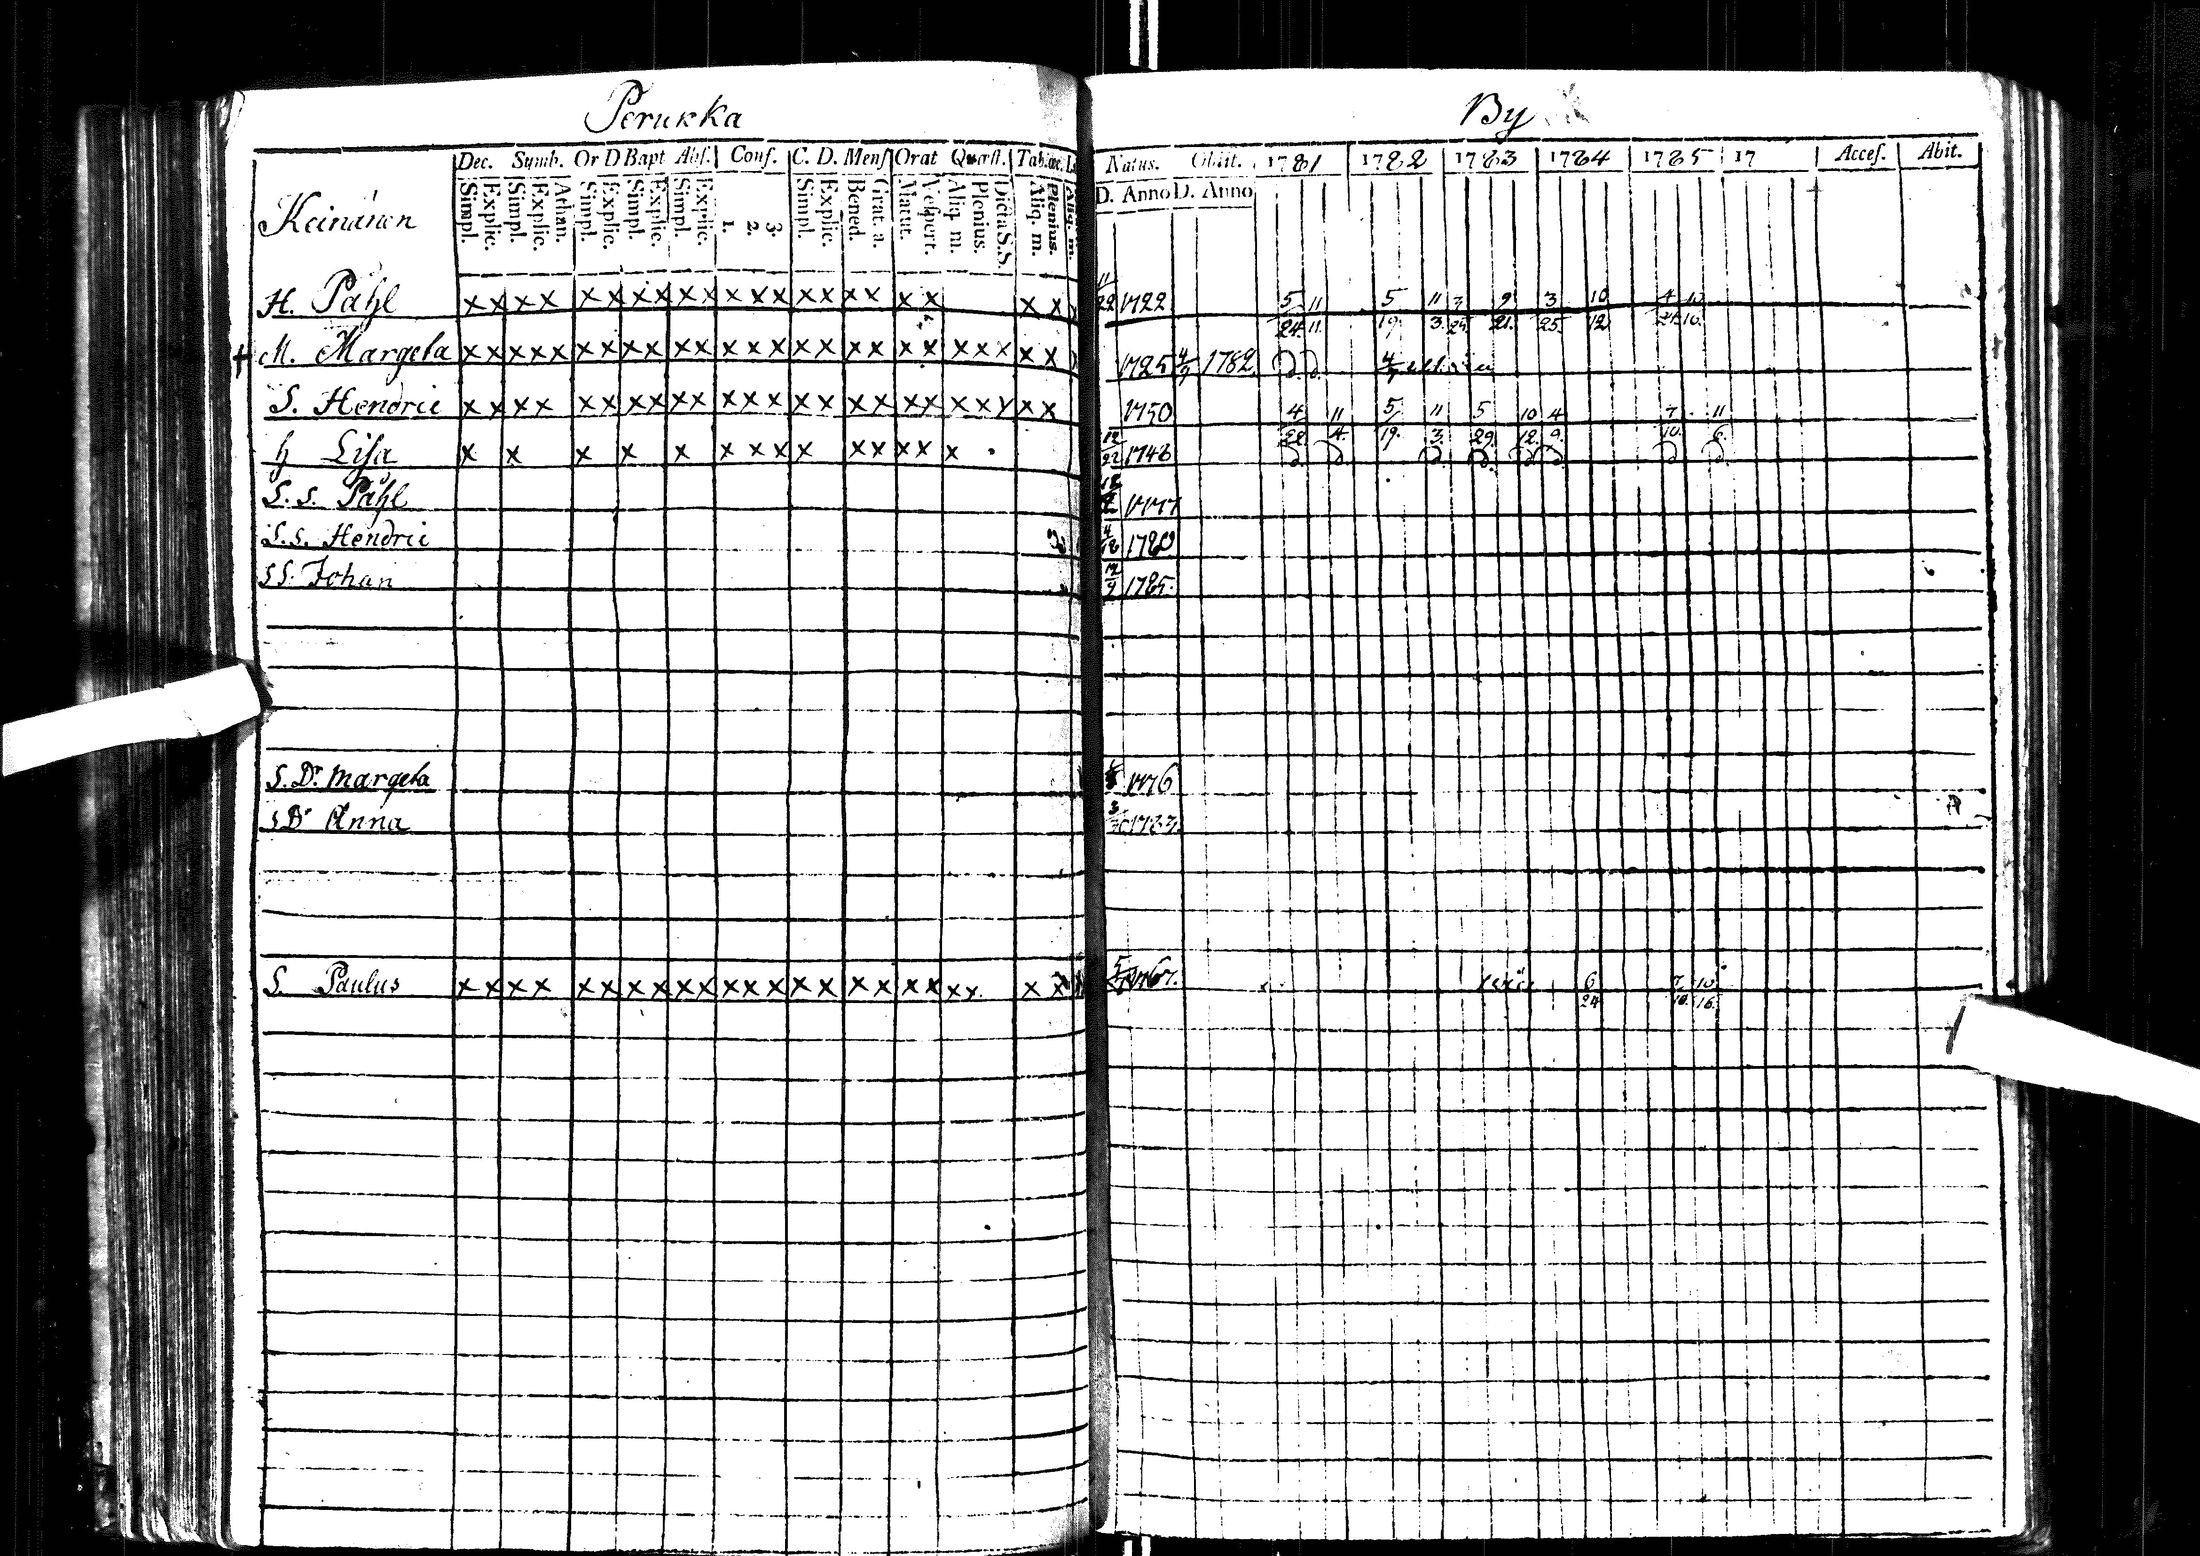 Perukka By
Dec. Symb. Or D Bapt Abs. Conf. C. D. Mens Orat Quæst. Natus. Obiit. 1781 1782 1783 1784 1785 17 Acces. Abit.
Simpl. Explic. Simpl. Explic. Athan. Simpl. Explic. Simpl. Explic. Simpl. Explic. 1. 2. 3. Simpl. Explic. Bened. Grat. a. Matut. Vespert. Aliq. m. Plenius. Dicta S.S. Aliq. m. Plenius. Aliq. m. D. Anno D. Anno
Keinänen
H. Påhl x x x x x x x x x x x x x x x x x x x x x 11/22 1722 5/24 11/11 5/19 11/3 9/21 3/25 10/12
+ M. Margeta x x x x x x x x x x x x x x x x x x x x x x x x 1725 4/9 1782 d. d.
S. Hendric x x x x x x x x x x x x x x x x x x x x x x x x 1750 4/22 11/4 5/19 11/3 5/29 10/12 4/9 7/10 11/6
h Lisa x x x x x x x x x x x x x x 12/22 1748 d. d. d. d. d. d. d. d.
S. s. Påhl 1777
S. s. Hendric 1780
S S. Johan 12/9 1785.
S. Dr Margeta 1776
S Dr Anna 1783.
S. Paulus x x x x x x x x x x x x x x x x x x x x x x x 1767. 6/24 7/10 10/16